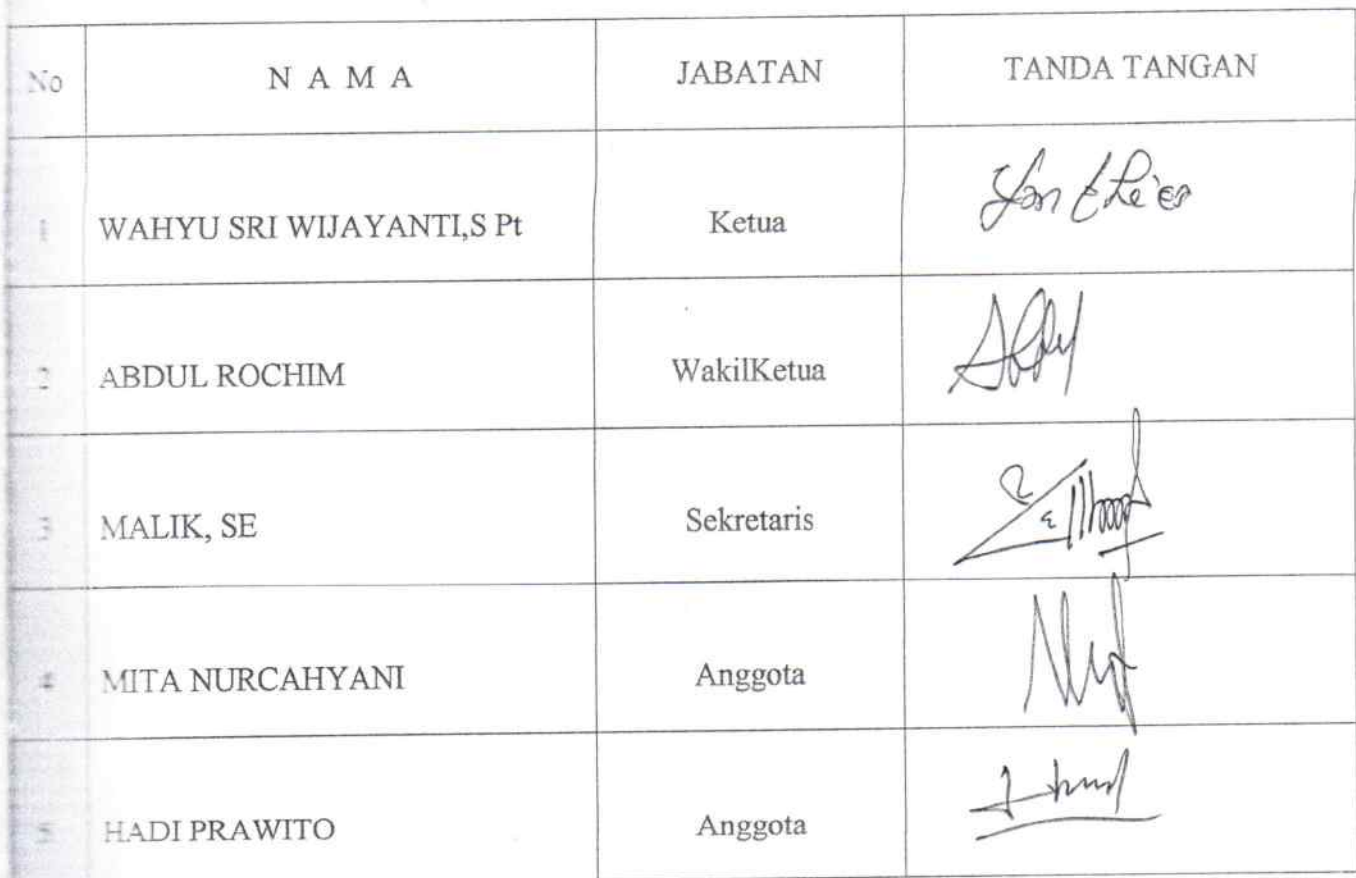 No N A M A JABATAN TANDA TANGAN
1 WAHYU SRI WIJAYANTI,S Pt Ketua
2 ABDUL ROCHIM WakilKetua
3 MALIK, SE Sekretaris
4 MITA NURCAHYANI Anggota
5 HADI PRAWITO Anggota